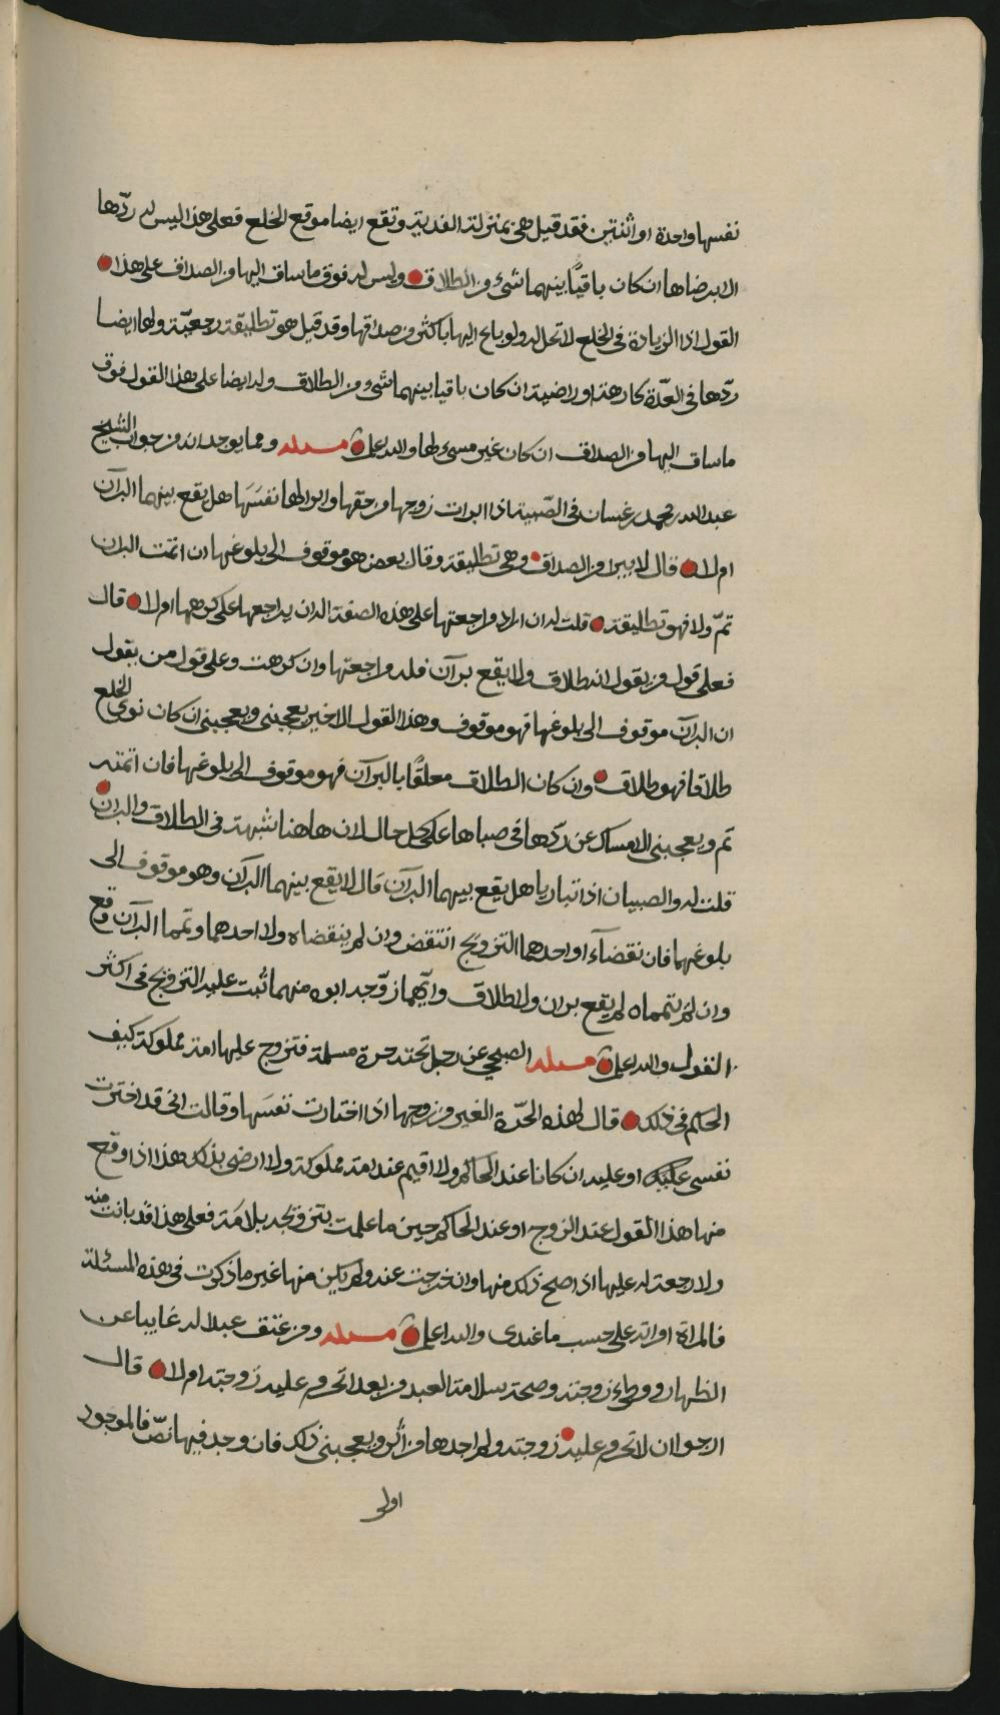 نفسها واحدة او اثنتين فقد قيل هي بمنزلة الفدية وتقع ايضا موقع الخلع فعلى هذا ليس له ردّها
الا برضاها ان كان باقيًا بينهما شيء من الطلاق وليس له فوق ما ساق اليها من الصداق على هذا
القول اذا الزيادة في الخلع لا تحل له ولو بلح اليها باكثر من صداقها وقد قيل هو تطليقة رجعيّة ولها ايضا
ردّها في العدّة كارهة او راضية ان كان باقيا بينهما شيء من الطلاق وله ايضا على هذا القول فوق
ما ساق اليها من الصداق ان كان غير مسيء لها والله اعلم مسئلة ومما يوجد انه من جواب الشيخ
عبدالله بن محمد بن غسان في الصّبية اذا ابرات زوجها من حقها وابرا لها نفسَهَا هل يقع بينهما البرآن
ام لا قال لا يبرا من الصداق وهي تطليقة وقال بعض هو موقوف الى بلوغها ان اتمت البران
تمّ ولا فهو تطليقة قلت له ان اراد مراجعتها على هذه الصفة اله ان يراجعها على كرهها ام لا قال
فعلى قول من يقول انه طلاق ولا يقع برآن فله مراجعتها وان كرهت وعلى قول من يقول
ان البرآن موقوف الى بلوغها فهو موقوف وهذا القول الاخير يعجبني ويعجبني ان كان نوى الخلع
طلاقا فهو طلاق وان كان الطلاق معلقًا بالبرآن فهو موقوف الى بلوغها فان اتمته
تم ويعجبني الامساك عن ردّها في صباها على كل حال لان هاهنا شبهة في الطلاق والبران
قلت له والصبيان اذا تباريا هل يقع بينهما البرآن قال لا يقع بينهما البرآن وهو موقوف الى
بلوغهما فان نقضآء او احدهما التزويج انتقض وان لم ينقضاه ولا احدهما وتمما البرآن وقع
وان لم يتمماه لم يقع بران ولا طلاق وايّهما زوّجه ابوه منهما ثبت عليه التزويج في اكثر
القول والله اعلم مسئلة الصبحي عن رجل تحته حرة مسلمة فتزوج عليها امة مملوكة كيف
الحكم في ذلك قال لهذه الحرّة الغير من زوجها اذا اختارت نفسَها وقالت اني قد اخترت
نفسي عليك او عليه ان كانا عند الحاكم ولا اقيم عند امة مملوكة ولا ارضى بذلك هذا اذا وقع
منها هذا القول عند الزوج او عند الحاكم حين ما علمت بتزويجه بلامَة فعلى هذا قد بانت منه
ولا رجعة له عليها اذا صح ذلك منها وان خرجت عنه ولم يكن منها غير ما ذكرت في هذه المسئلة
فالمراة امراته على حسب ما عندي والله اعلم مسئلة ومن عتق عبدا له غايبا عن
الظهار ووطئ زوجته وصحة سلامة العبد من بعد اتحرم عليه زوجته ام لا قال
ارجوا ان لا تحرم عليه زوجته ولم اجدها من اثر ويعجبني ذلك فان وجد فيها نصّ فالموجود
اولى